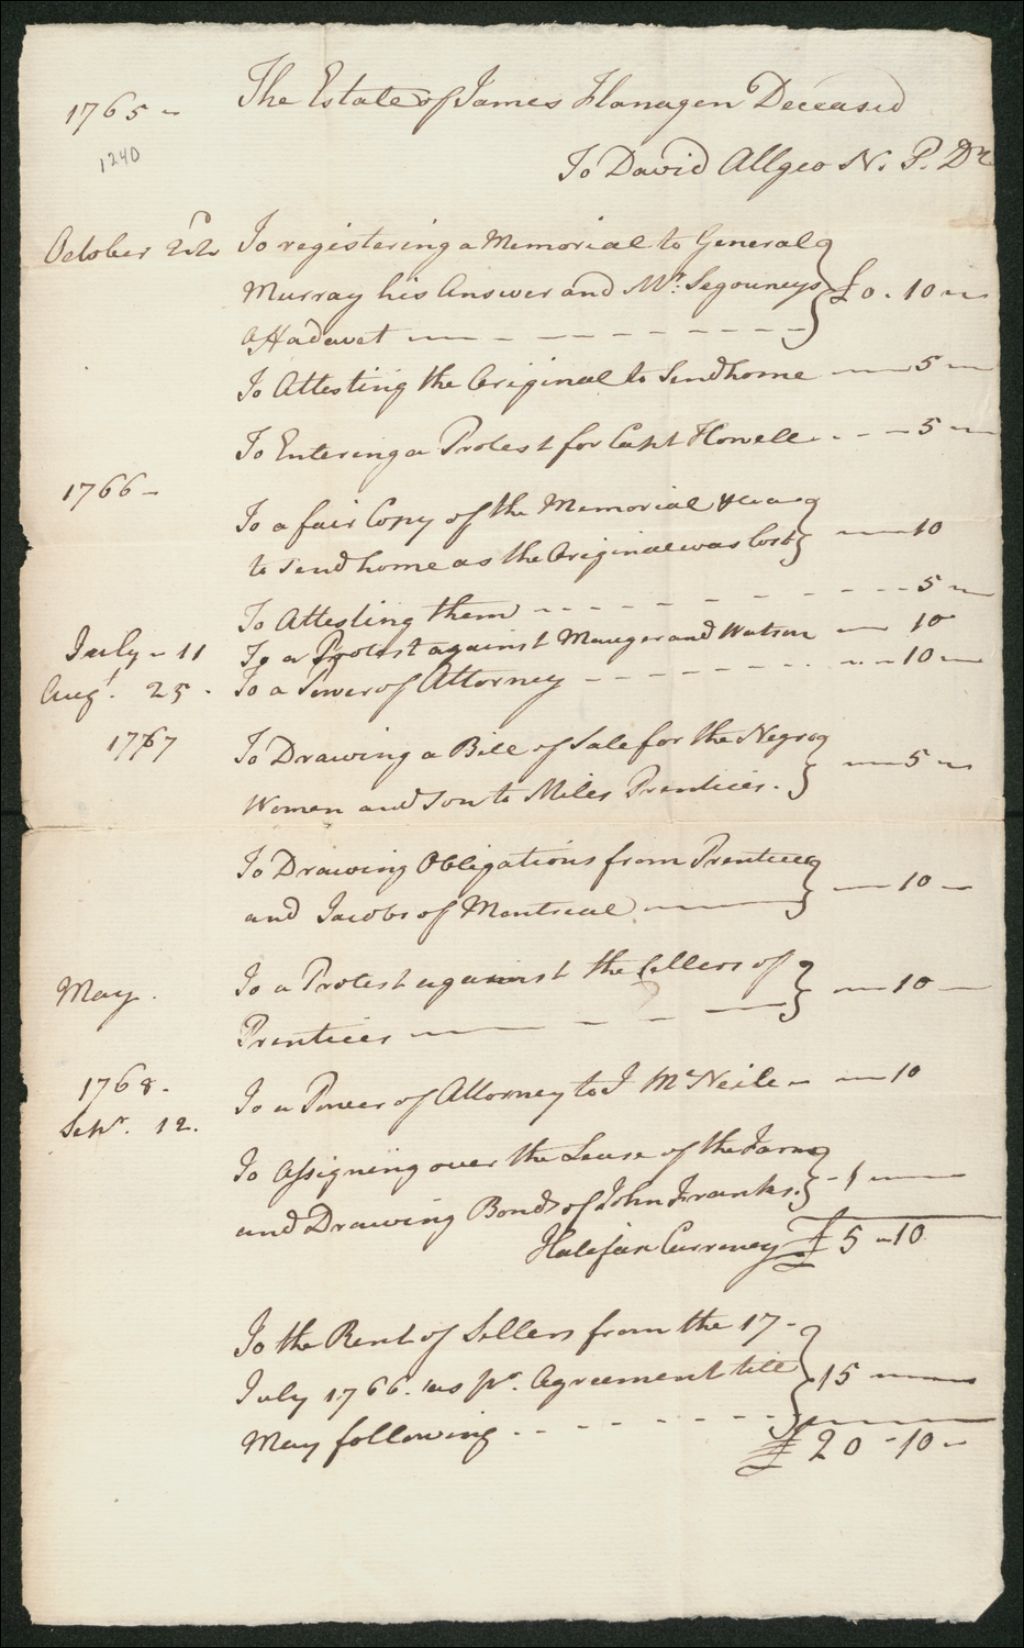 1765 - The Estate of James Flanagen Deceased
1240
To David Allgeo N. P. Dr
October 22d To registering a Memorial to General
Murray his Answer and Mr. Segouneys } £0 . 10 -
Affadavet - - - - - -
To Attesting the Original to Send home - 5 -
To Entering a Protest for Capt Howell - - - 5 -
1766 -
To a fair Copy of the Memorial &ca
to Send home as the Original was lost } - 10
To Attesting them - - - - - - 5 -
July - 11 To a Protest against Mauger and Watson - 10
Augt. 25 - To a Power of Attorney - - - - - - 10 -
1767 To Drawing a Bill of Sale for the Negro
Women and Son to Miles Prentices . } - 5 -
To Drawing Obligations from Prentices
and Jacobs of Montreal - } - 10 -
May . To a Protest against the Cellers of
Prentices - - - - } - 10 -
1768 - To a Power of Attorney to J McNeile - - 10
Sepr. 12 .
To Assigning over the Lease of the Farm
and Drawing Bonds of John Franks . } - 1 -
Halifax Currency £ 5 - 10
To the Rent of Sellers from the 17 -
July 1766 . as pr. Agreement till } 15 -
May following - - - - - -
£ 20 - 10 -